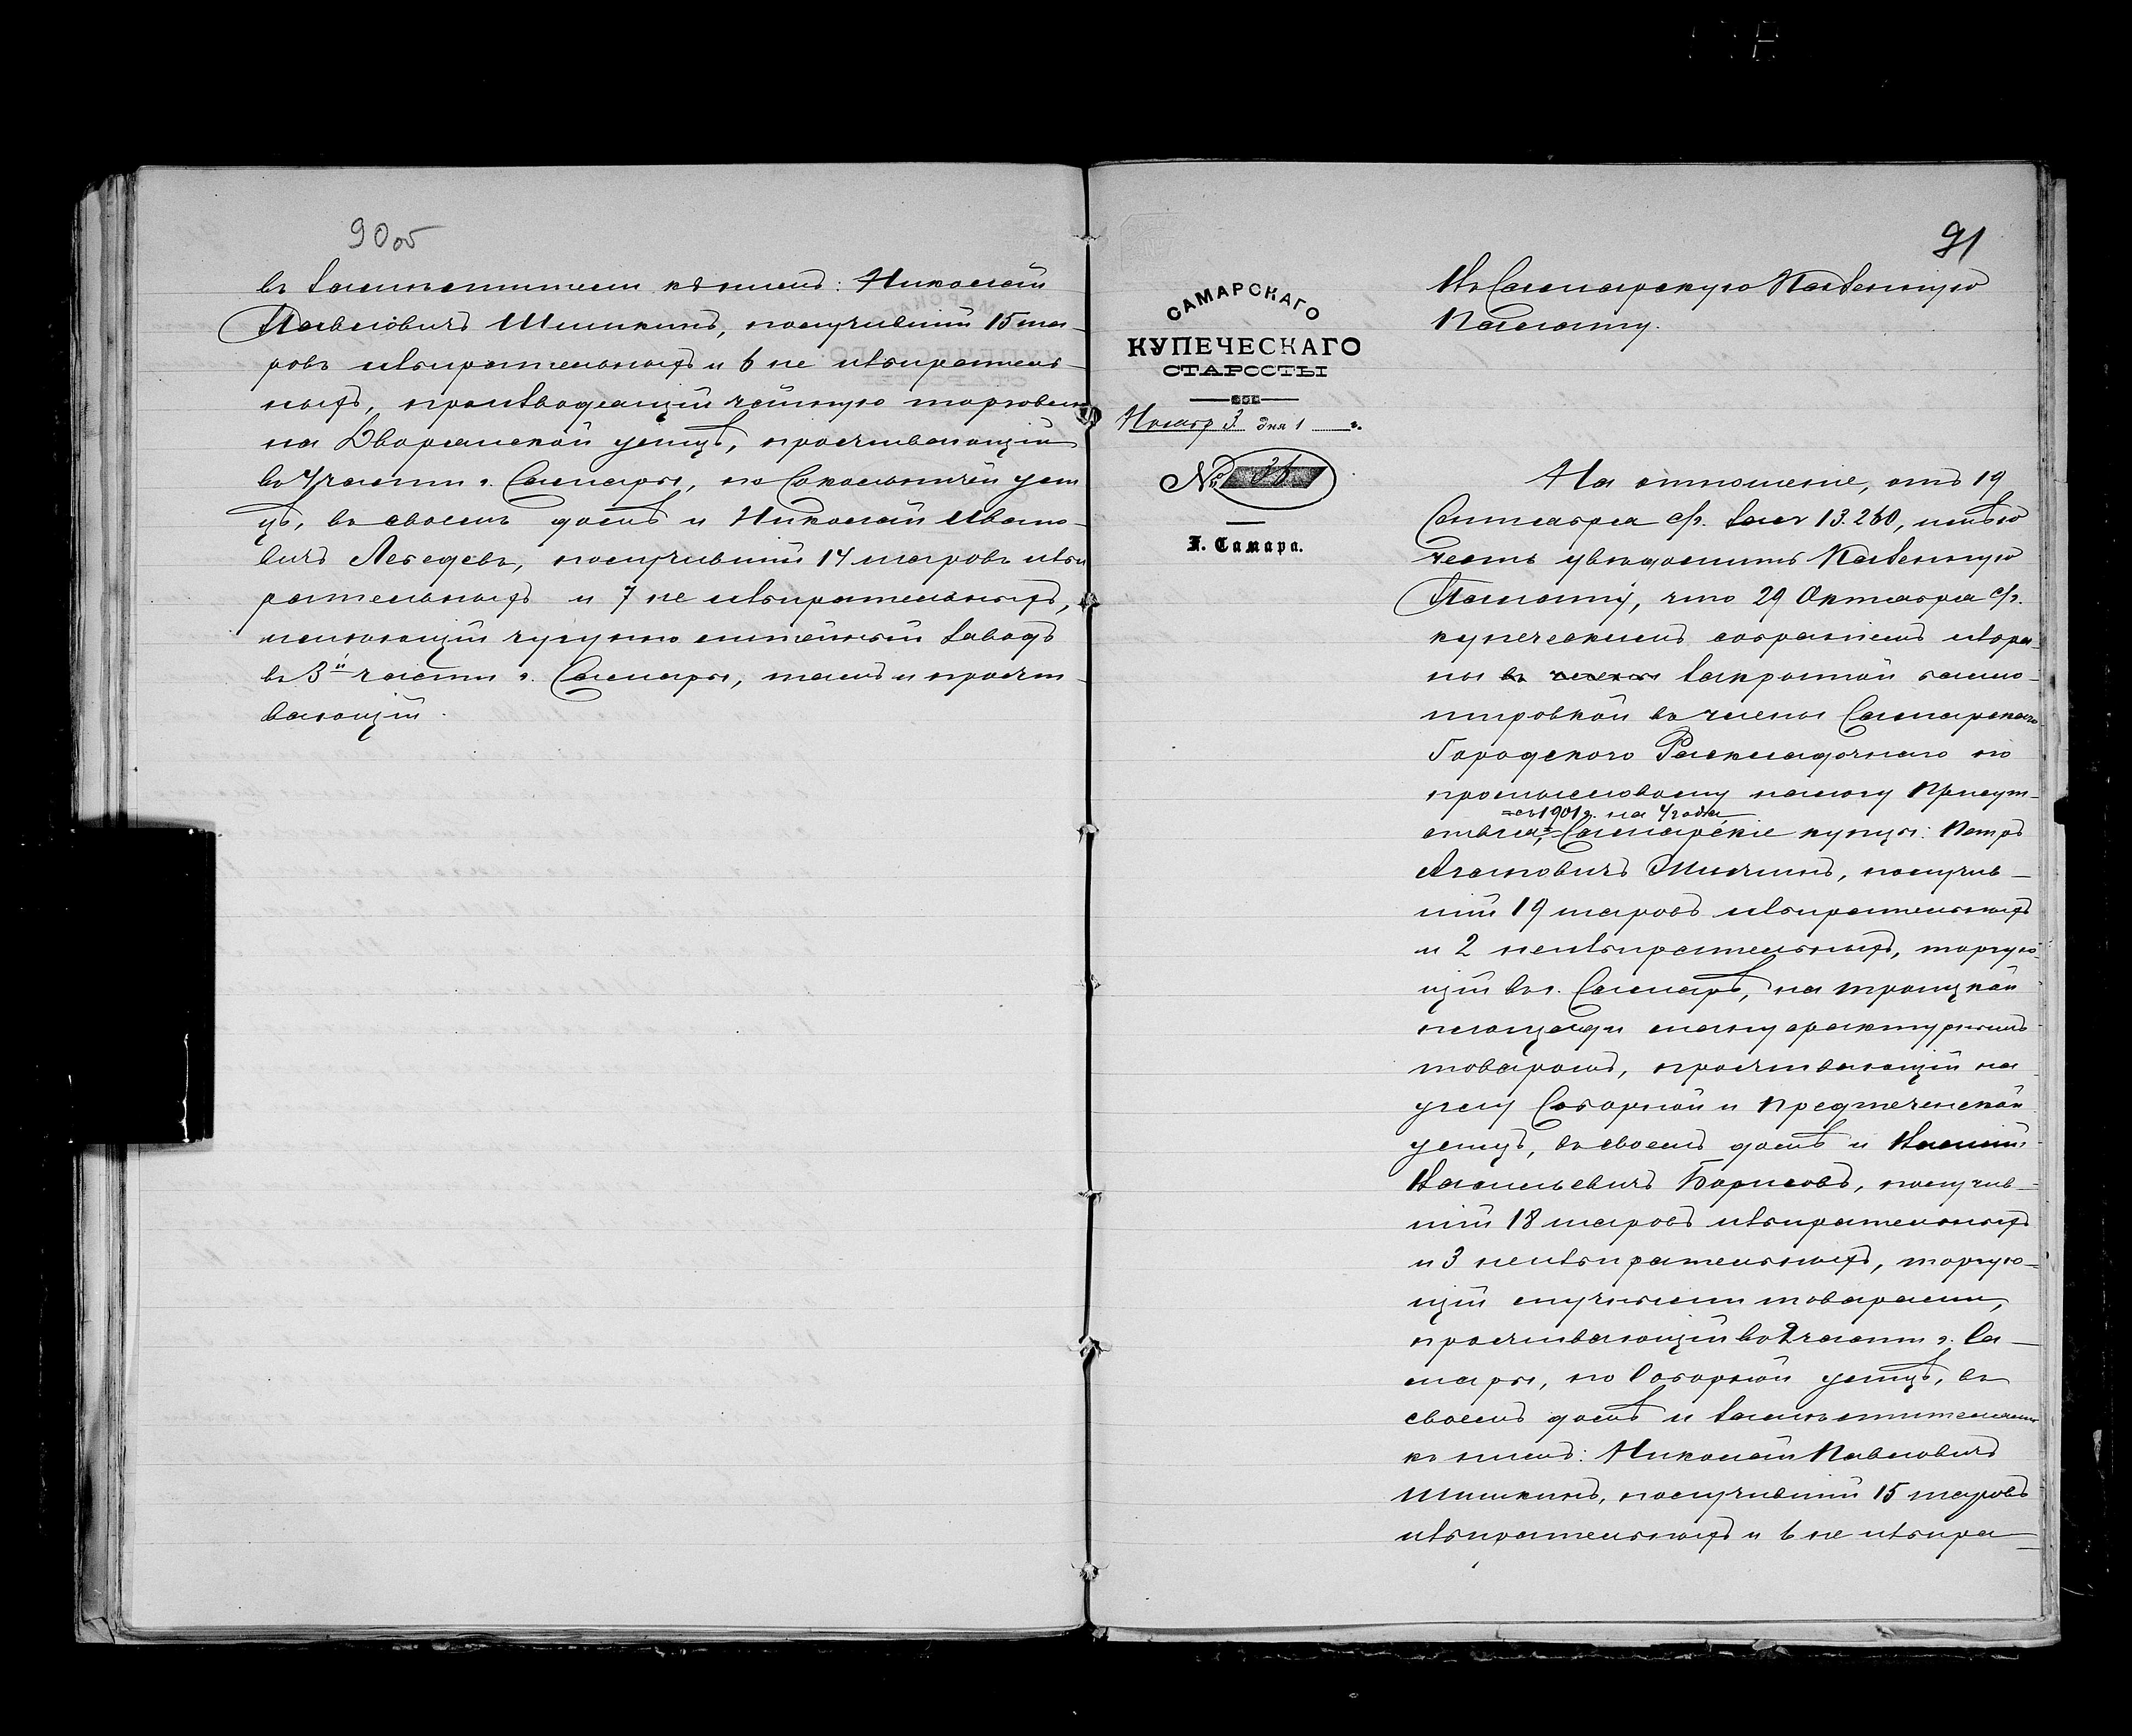 90 об
въ заместители къ нимъ: Николай
Павловичъ Шишкинъ, получившій 15 ша-
ровъ избирательныхъ и 6 не избиратель-
ныхъ, производящій чайную торговлю
на Дворянской улицѣ, проживающій
въ 4 части г. Самары, по Сокольничей ули
цѣ, въ своемъ домѣ и Николай Ивано-
вичъ Лебедевъ, получившій 14 шаровъ изби
рательныхъ и 7 не избирательныхъ,
имеющій чугунно литейный заводъ
въ 3й части г. Самары, тамъ и прожи-
вающій.
91
САМАРСКАГО
КУПЕЧЕСКАГО
СТАРОСТЫ
Ноябр 3 дня 1 г.
№ 36
Г. Самара.
Въ Самарскую Казенную
Палату.
На отношеніе, отъ 19
Сентября с/г. за № 13.260, имѣю
честь увѣдомить Казенную
Палату, что 29 Октября с/г.
купеческимъ собраніемъ избра-
ны въ члены закрытой балло-
тировкой въ члены Самарскаго
Городского Раскладочнаго по
промысловому налогу Присут-
=съ 1901 г. на 4 года,
ствія,= Самарскіе купцы: Петръ
Агаповичъ Мичинъ, получив-
шій 19 шаровъ избирательныхъ
и 2 неизбирательныхъ, торгую-
щій въ г. Самарѣ, на троицкой
площади мануфактурнымъ
товаромъ, проживающій на
углу Соборной и Предтеченской
улицъ, въ своемъ домѣ и Василій
Васильевичъ Борисовъ, получив-
шій 18 шаровъ избирательныхъ
и 3 неизбирательныхъ, торгую-
щій мучными товарами,
проживающій во 2 части г. Са-
мары, по Соборной улицѣ, въ
своемъ домѣ и заместителями
къ нимъ: Николай Павловичъ
Шишкинъ, получившій 15 шаровъ
избирательныхъ и 6 не избира-